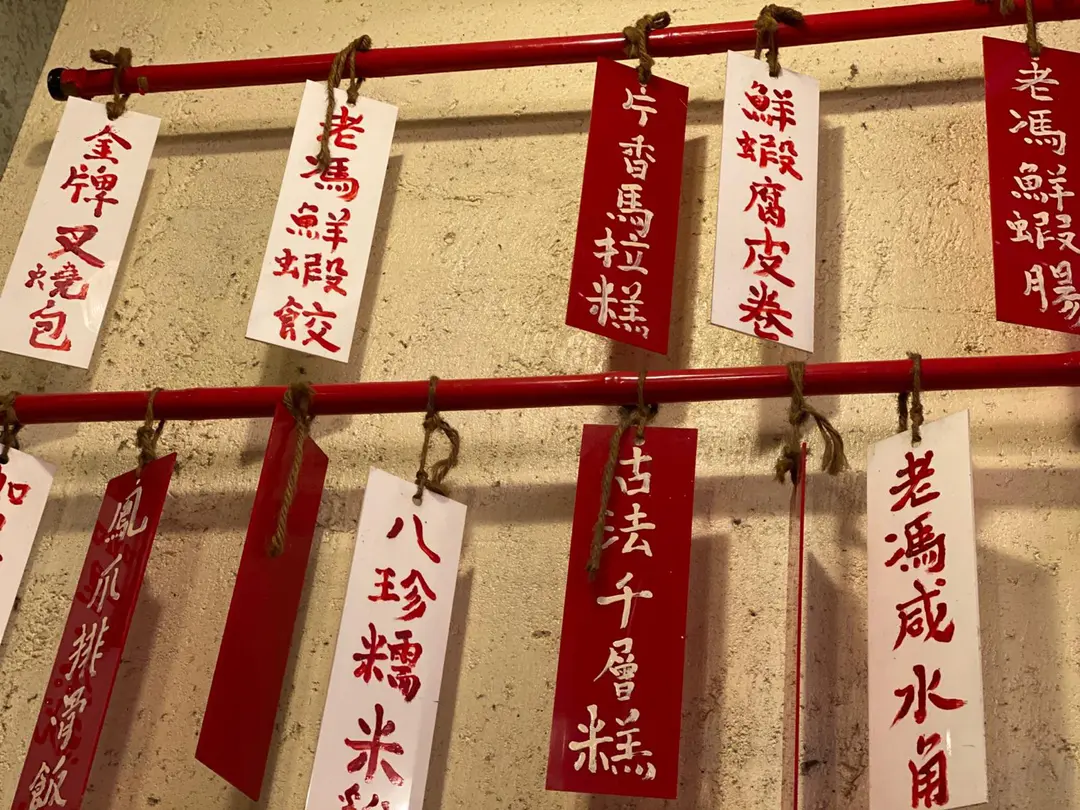 金牌叉燒包
老馮鮮蝦餃
片香馬拉糕
鮮蝦腐皮卷
老馮鮮蝦腸
鳳爪排骨飯
八珍糯米
古法千層糕
老馮咸水角